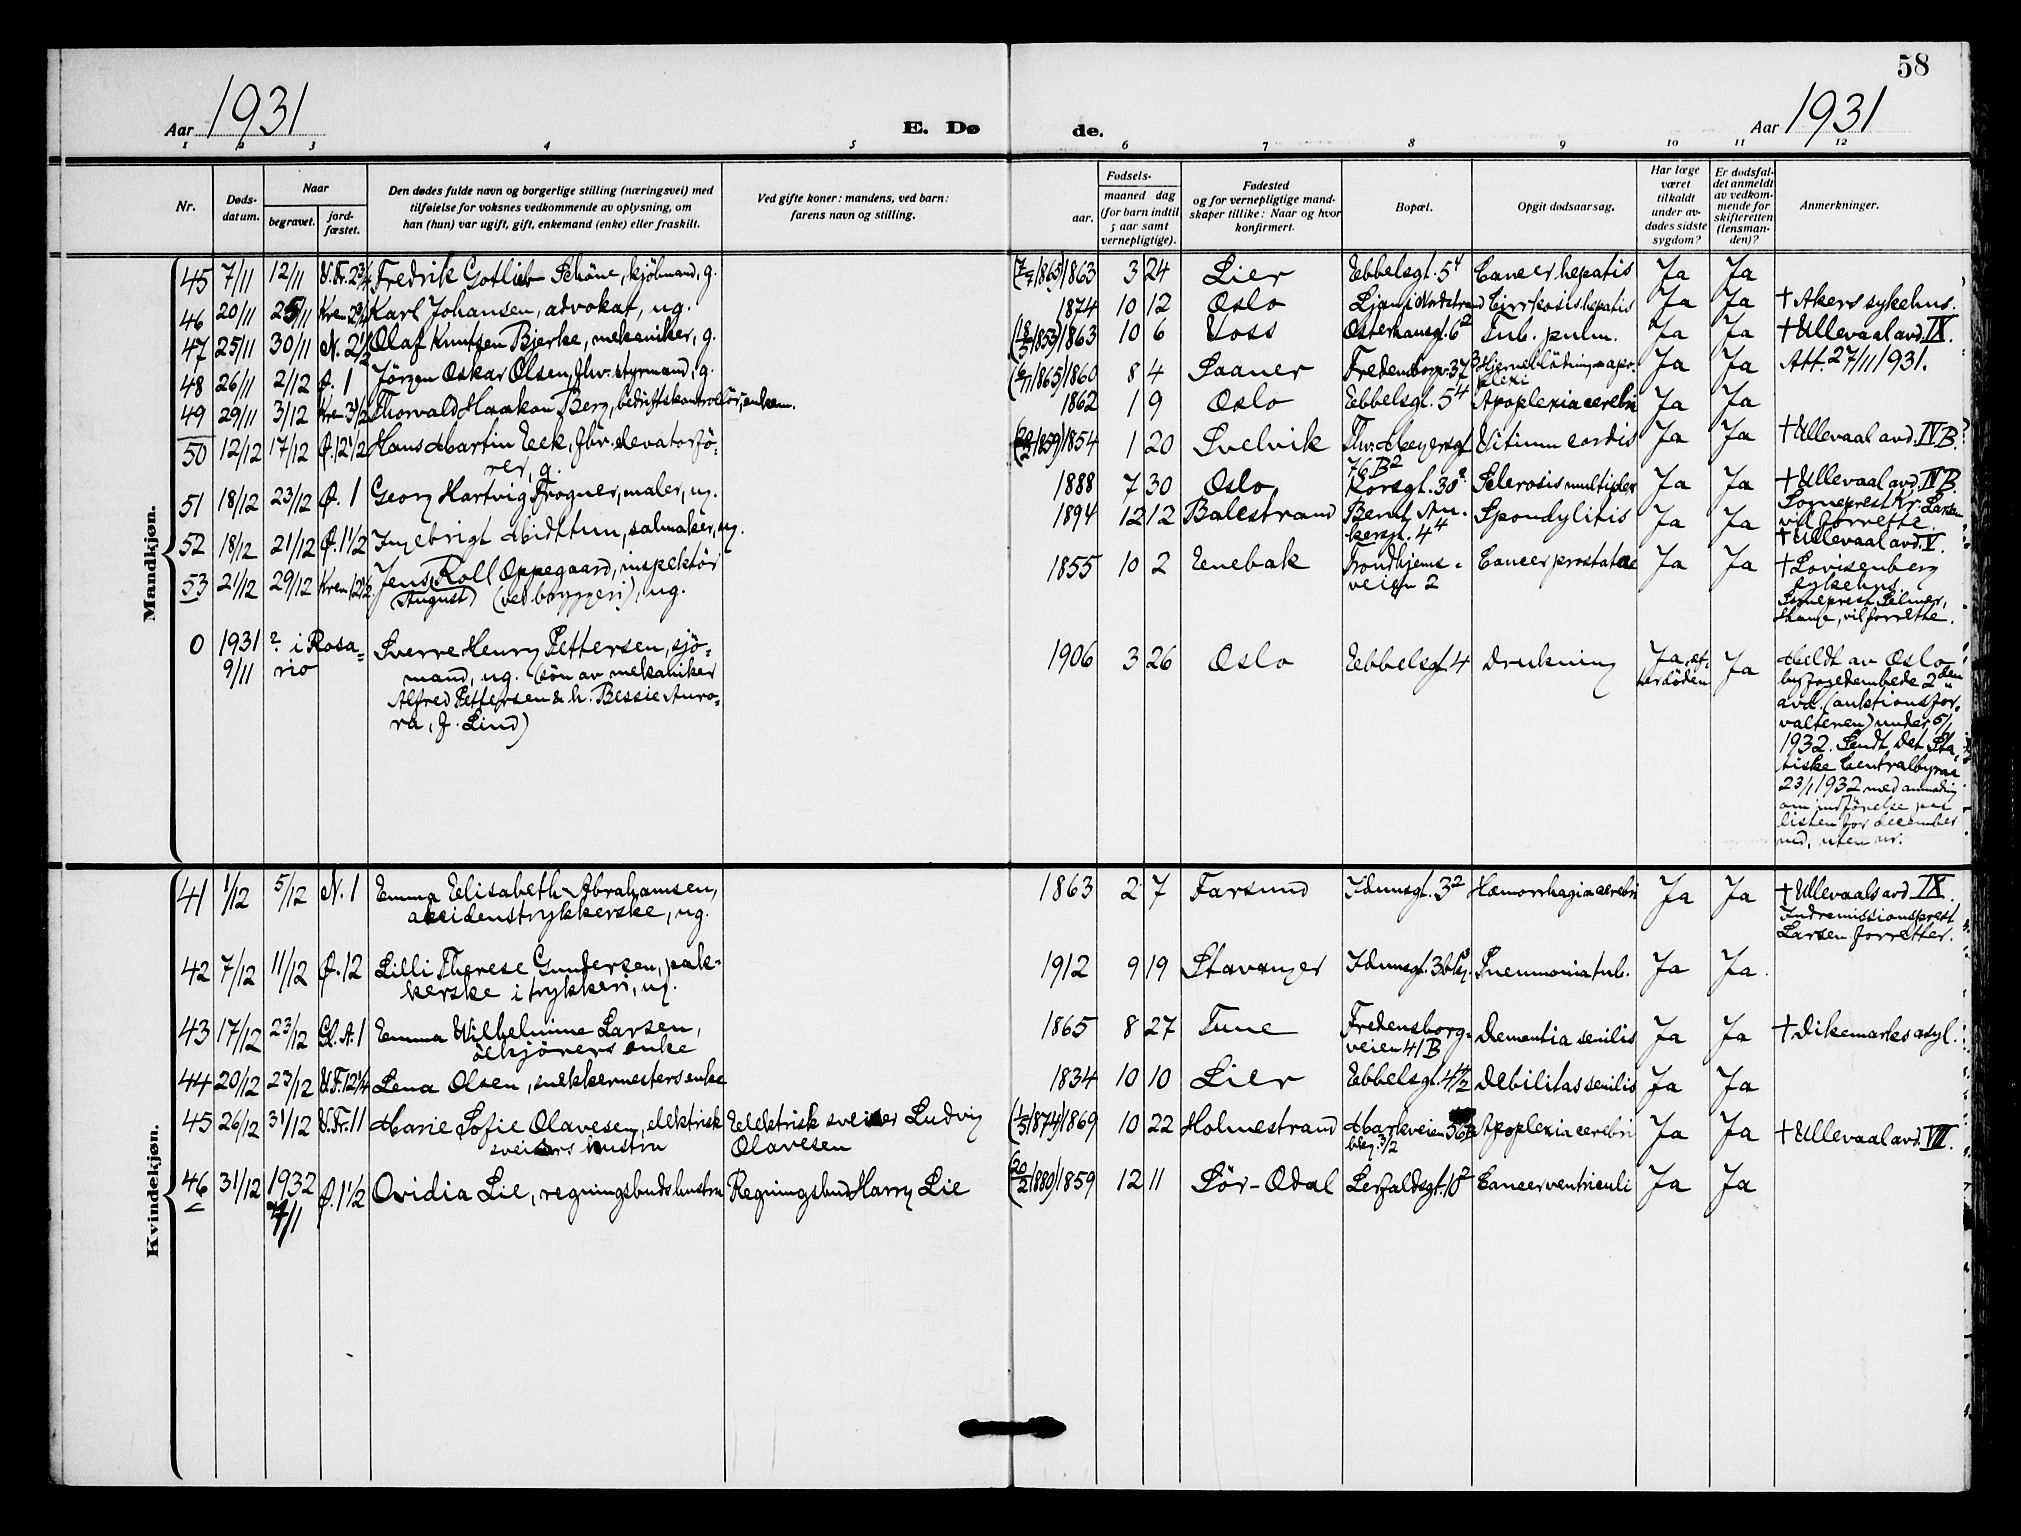 58
Aar 1931 E. Døde. Aar 1931
1 2 3 4 5 6 7 8 9 10 11 12
Nr. Døds-datum. Naar begravet. jord-fæstet. Den dødes fulde navn og borgerlige stilling (næringsvei) med tilføielse for voksnes vedkommende av oplysning, om han (hun) var ugift, gift, enkemand (enke) eller fraskilt. Ved gifte koner: mandens, ved barn: farens navn og stilling. Fødsels- aar. maaned dag (for barn indtil 5 aar samt vernepligtige). Fødested og for vernepligtige mand-skaper tillike: Naar og hvor konfirmert. Bopæl. Opgit dødsaarsag. Har læge været tilkaldt under av-dødes sidste sygdom? Er dødsfal-det anmeldt av vedkom-mende for skifteretten (lensman-den)? Anmerkninger.
Mandkjøn.
45 7/11 12/11 Fredrik Gotlieb Schöne, kjöbmand, g. 1863 3 24 Lier Ebbelsgt. 5⁴ Cancer hepatis Ja Ja
46 20/11 25/11 Karl Johansen, advokat, ug. 1874 10 12 Oslo Ljan i Nordstrand Cirrhosis hepatis Ja Ja † Akers sykehus.
47 25/11 30/11 N. 2 1/2 Olaf Knutsen Bjerke, mekaniker, g. 1863 10 6 Voss Osterhausgt. 6² Tub. pulm. Ja Ja † Ullevaal avd. IX.
48 26/11 2/12 Ø. 1 Jörgen Oskar Olsen, fhv. styrmand, g. 1860 8 4 Saaner Fredensborgv. 37³ Hjerneblödning apoplexi Ja Ja Att. 27/11 1931.
49 29/11 3/12 Thorvald Haakon Berg, bedriftskontrollör, enkem. 1862 1 9 Oslo Ebbelsgt. 5⁴ Apoplexia cerebri Ja Ja
50 12/12 17/12 Ø. 12 1/2 Hans Martin Eek, fhv. elevatorfö-
rer, g. 1854 1 20 Svelvik Thv. Meyersgt 76 B² Vitium cordis Ja Ja † Ullevaal avd. IV B.
51 18/12 23/12 Ø. 1 Georg Hartvig Frogner, maler, ug. 1888 7 30 Oslo Korsgt. 30² Sclerosis multiplex Ja Ja † Ullevaal avd. IV B.
Sogneprest Kr. Larsen
vil forrette.
52 18/12 21/12 Ø. 1 1/2 Ingebrigt Midttun, salmaker, ug. 1894 12 12 Balestrand Bernt Ankersgt. 4⁴ Spondylitis Ja Ja † Ullevaal avd. V.
53 21/12 29/12 Krem 12 1/2 Jens Roll Oppegaard, inspektör
(August) (ved bryggeri), ug. 1855 10 2 Enebak Trondhjems-
veien 2 Cancer prostatae Ja Ja † Lovisenberg
sykehus.
Sogneprest Selmer,
vil forrette.
0 1931 9/11 ? i Rosa-
rio Sverre Henry Pettersen, sjö-
mand, ug. (sön av mekaniker
Alfred Pettersen & h. Bessie Auro-
ra, f. Lind) 1906 3 26 Oslo Ebbelsgt. 4 Drukning Ja, ef-
ter döden Ja Meldt av Oslo
byfogedembede 2den
avd. (auktionsfor-
valteren) under 5/1
1932. Sendt det Sta-
tiske Centralbyraa
23/1 1932 med anmodning
om indförelse paa
listen for december
md, uten nr.
Kvindekjøn.
41 1/12 5/12 N. 1 Emma Elisabeth Abrahamsen,
akcidenstrykkerske, ug. 1863 2 7 Farsund Idunsgt. 3² Hæmorrhagia cerebri Ja Ja † Ullevaals avd. IX.
Indremissionsprest
Larsen forretter.
42 7/12 11/12 Ø. 12 Lilli Therese Gundersen, pak-
kerske i trykkeri, ug. 1912 9 19 Stavanger Idunsgt. Pneumonia tub. Ja Ja.
43 17/12 23/12 Gl. A. 1 Emma Wilhelmine Larsen,
ölkjörers enke 1865 8 27 Tune Fredensborg-
veien 41 B Dementia senilis Ja Ja † Dikemarks asyl.
44 20/12 23/12 V.F. 12 1/4 Lena Olsen, snekkermesters enke 1834 10 10 Lier Ebbelsgt. Debilitas senilis Ja Ja
45 26/12 31/12 V.Fr. 11 Marie Sofie Olavesen, elektrisk
sveisers hustru Elektrisk sveiser Ludvig
Olavesen 1869 10 22 Holmestrand Markveien Apoplexia cerebri Ja Ja † Ullevaal avd. VII.
46 31/12 1932
Ø. 1 1/2 Ovidia Lie, regningsbuds hustru Regningsbud Harry Lie (20/2 1880) 1859 12 11 Sör-Odal Lerfaldsgt. 10² Cancer ventriculi Ja Ja